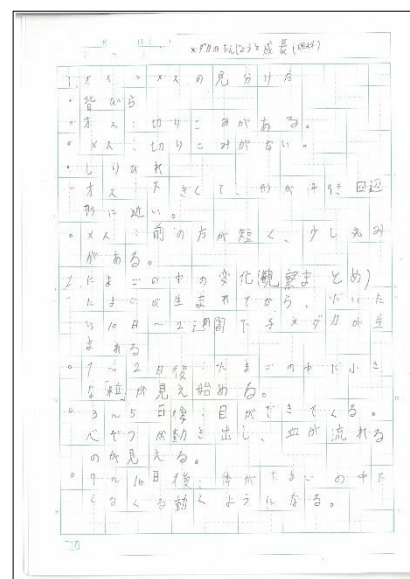 メダカのたんじょうと成長(理科)
1.オス・メスの見分け方
・背びら
・オス:切りこみがある。
・メス:切りこみがない。
・しりびれ
・オス:大きくて、形が平行四辺
形に近い。
・メス:前の方が短く、少し丸み
がある。
2.たまごの中の変化(観察まとめ)
・たまごが生まれてから、だいた
い10日～2週間で子メダカが生
まれる
・1～2日後:たまごの中に小さ
な「粒」が見え始める。
・3～5日後:目ができてくる。
心ぞうが動き出し、血が流れる
のが見える。
・7～10日後:体がたまごの中で
くるくる動くようになる。